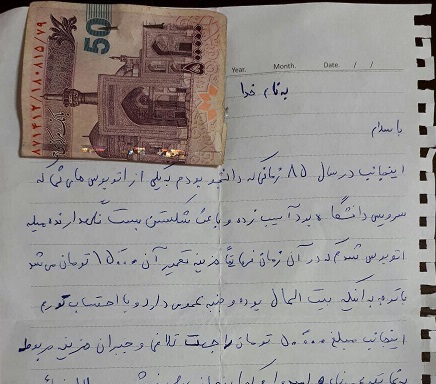 50
۵۰۰۰۰۰
۸۷۱۴۱۲/۱۸۰۸۱۵/۷۹
Year. Month. Date. / /
به نام خدا
با سلام
اینجانب در سال ۸۵ زمانی که دانشجو بودم به یکی از اتوبوس های شما که
سرویس دانشگاه بود آسیب زده و باعث شکستن بست نگهدارنده میله
اتوبوس شدم که در آن زمان هزینه تعمیر آن ۱۵۰۰۰ تومان می شد
با توجه به اینکه بیت المال بوده و جنبه عمومی دارد و با احتساب تورم
اینجانب مبلغ ۵۰۰۰۰ تومان را جهت تلافی و جبران هزینه مربوطه